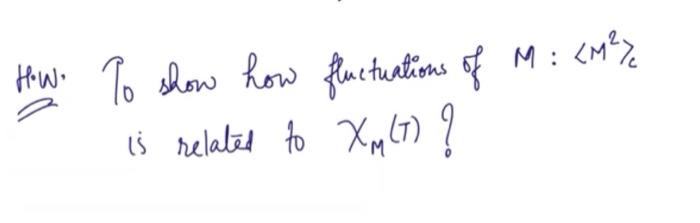 H.W. To show how fluctuations of M : <M²>c
is related to χ_M(T) ?